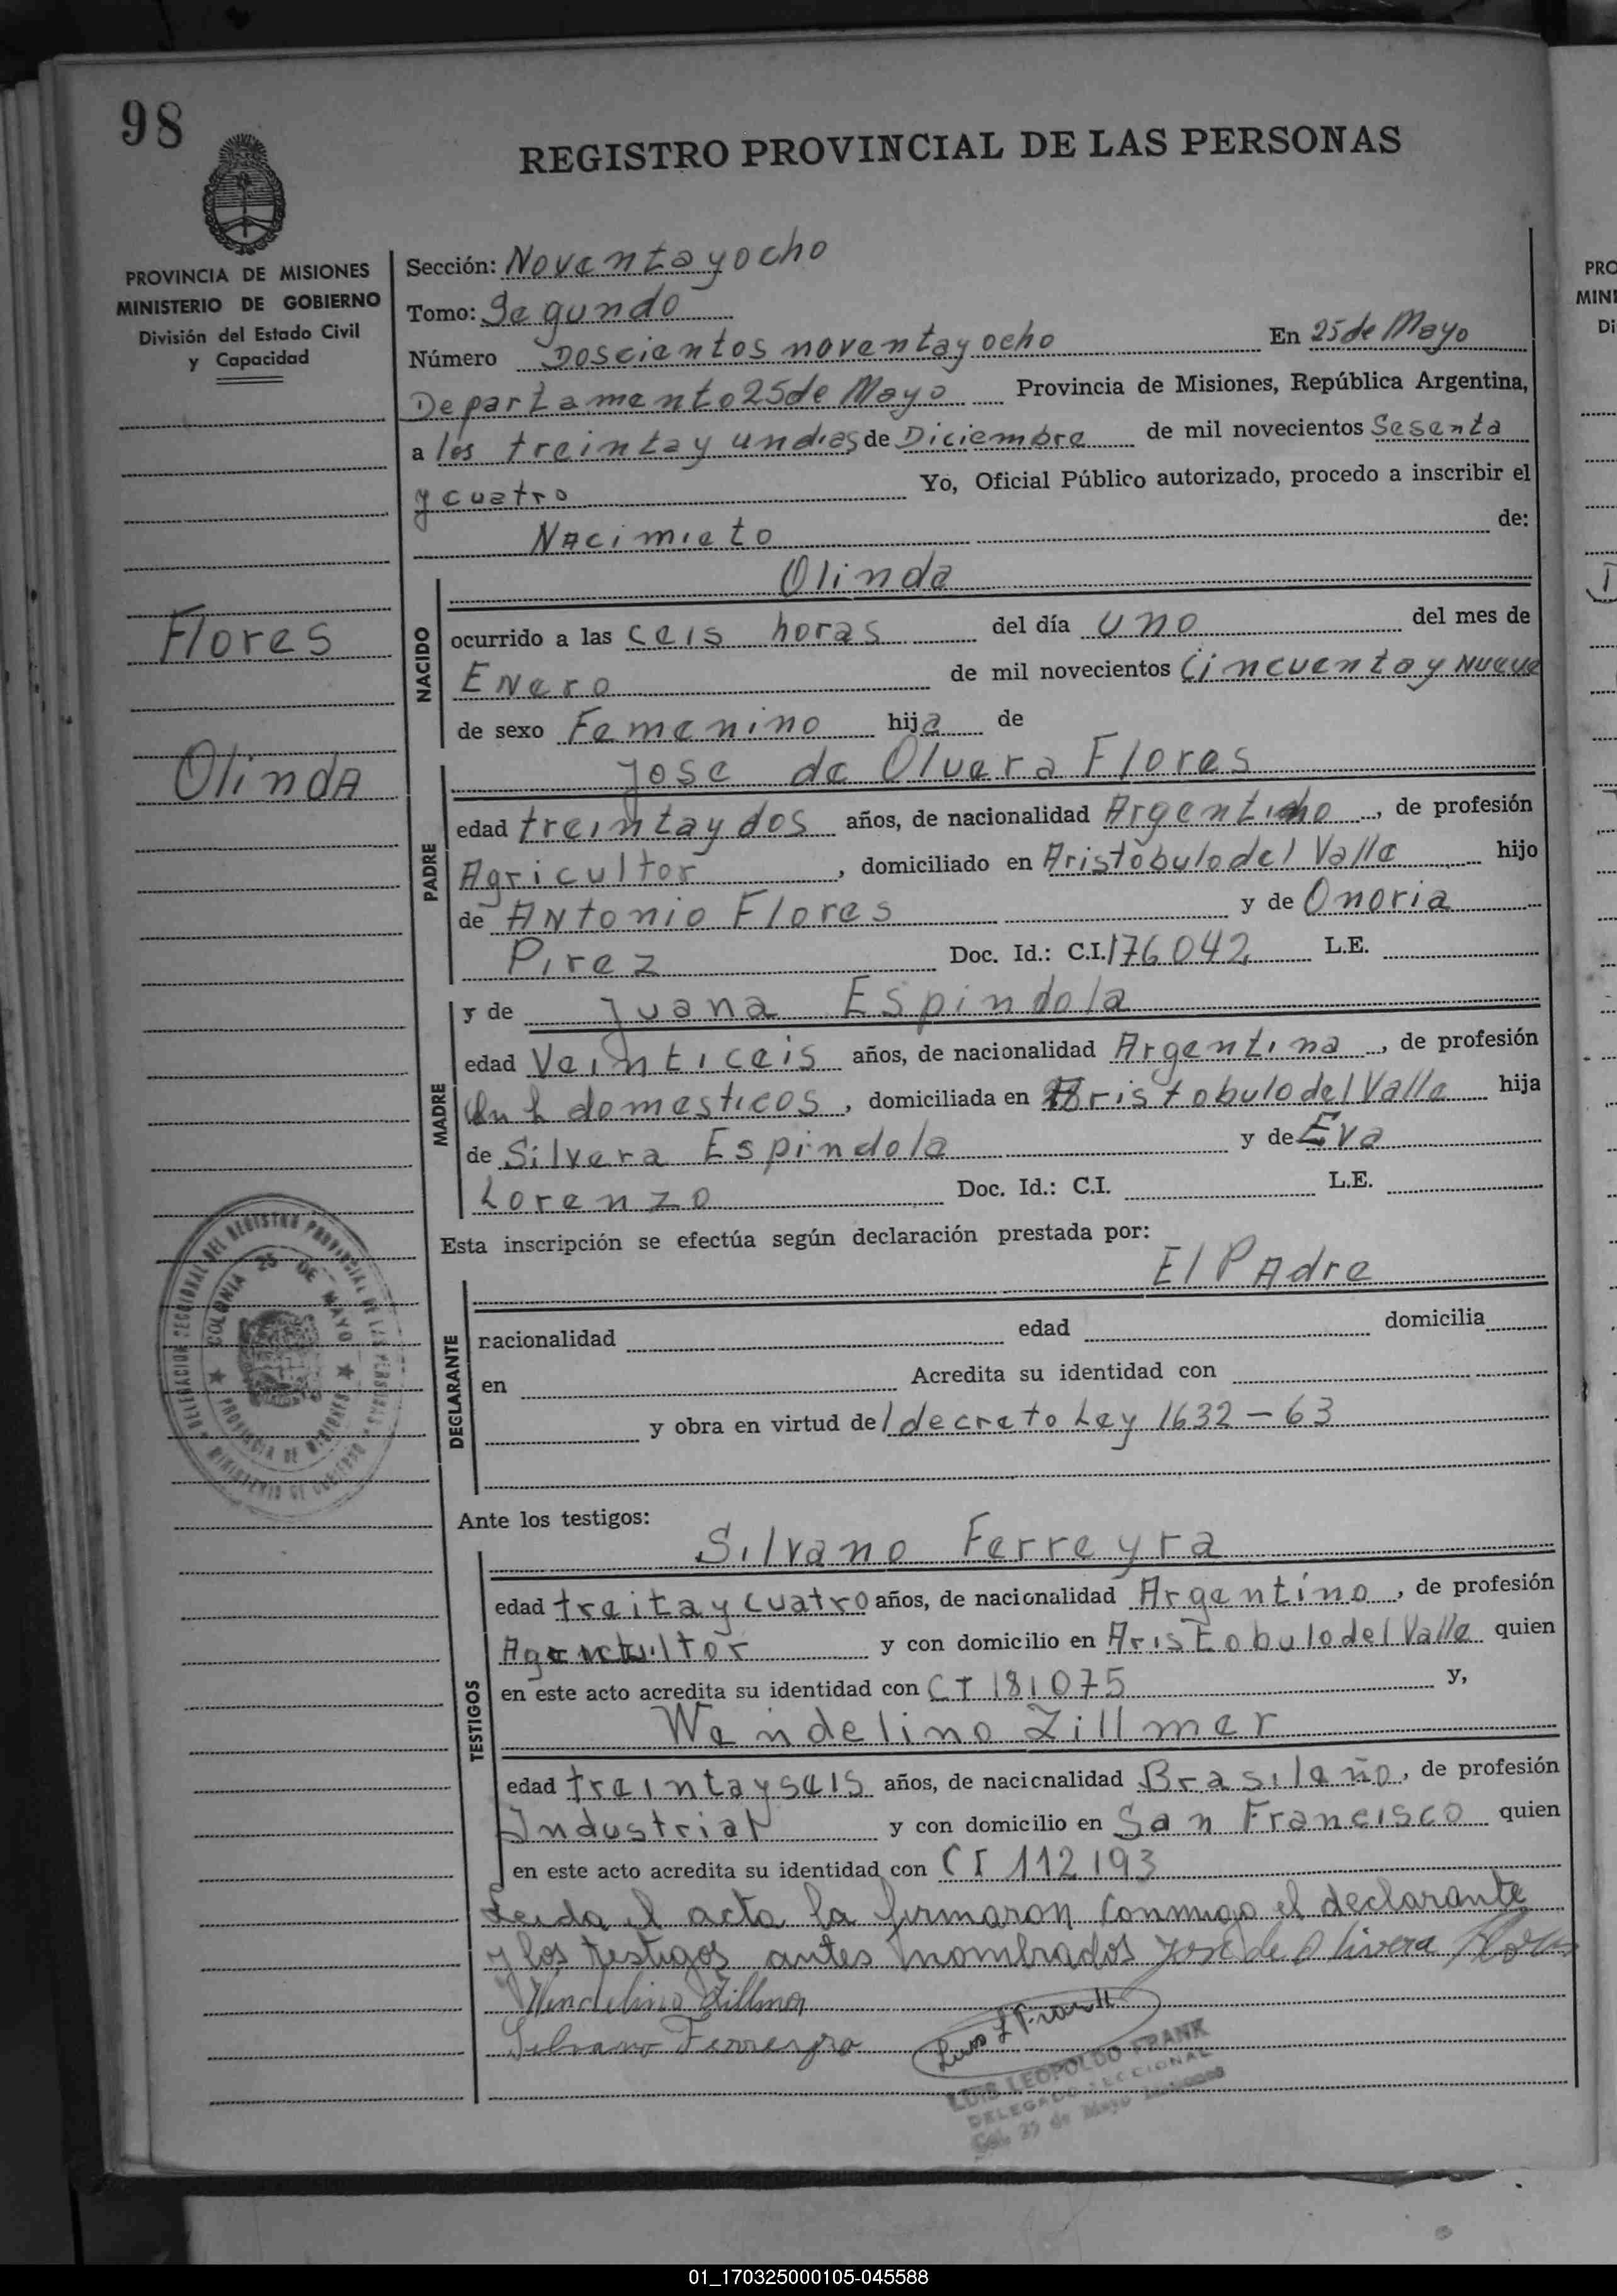 98
REGISTRO PROVINCIAL DE LAS PERSONAS
PROVINCIA DE MISIONES
MINISTERIO DE GOBIERNO
División del Estado Civil
y Capacidad
Flores
Olinda
Sección: Noventa y ocho
Tomo: Segundo
Número Doscientos noventa y ocho En 25 de Mayo
Departamento 25 de Mayo Provincia de Misiones, República Argentina,
a los treinta y un dias de Diciembre de mil novecientos Sesenta
y cuatro Yo, Oficial Público autorizado, procedo a inscribir el
Nacimieto de:
NACIDO
Olinda
ocurrido a las ceis horas del día uno del mes de
Enero de mil novecientos Cincuenta y Nueve
de sexo Femenino hija de
PADRE
Jose de Olvera Flores
edad treinta y dos años, de nacionalidad Argentino, de profesión
Agricultor, domiciliado en Aristobulo del Valle hijo
de Antonio Flores y de Onoria
Pirez Doc. Id.: C.I. 176042 L.E.
MADRE
y de Juana Espindola
edad Veinticeis años, de nacionalidad Argentina, de profesión
domesticos, domiciliada en Aristobulo del Valle hija
de Silvera Espindola y de Eva
Lorenzo Doc. Id.: C.I. L.E.
Esta inscripción se efectúa según declaración prestada por:
DECLARANTE
El Padre
nacionalidad edad domicilia
en Acredita su identidad con
y obra en virtud del decreto Ley 1632-63
Ante los testigos:
TESTIGOS
Silvano Ferreyra
edad treita y cuatro años, de nacionalidad Argentino, de profesión
Agricultor y con domicilio en Aristobulo del Valle quien
en este acto acredita su identidad con CI 181075 y,
Wendelino Zillmer
edad treinta y seis años, de nacionalidad Brasileño, de profesión
Industrial y con domicilio en San Francisco quien
en este acto acredita su identidad con CI 112193
Leida el acta la firmaron conmigo el declarante
y los testigos antes nombrados Jose de Olivera Flores
Wendelino Zillmer
Silvano Ferreyra Luis L Frank
LUIS LEOPOLDO FRANK
DELEGADO SECCIONAL
Col. 25 de Mayo Misiones
DELEGACION SECCIONAL DEL REGISTRO PROVINCIAL DE LAS PERSONAS
COLONIA 25 DE MAYO
PROVINCIA DE MISIONES
MINISTERIO DE GOBIERNO
PRO
MINI
Di
01_170325000105-045588